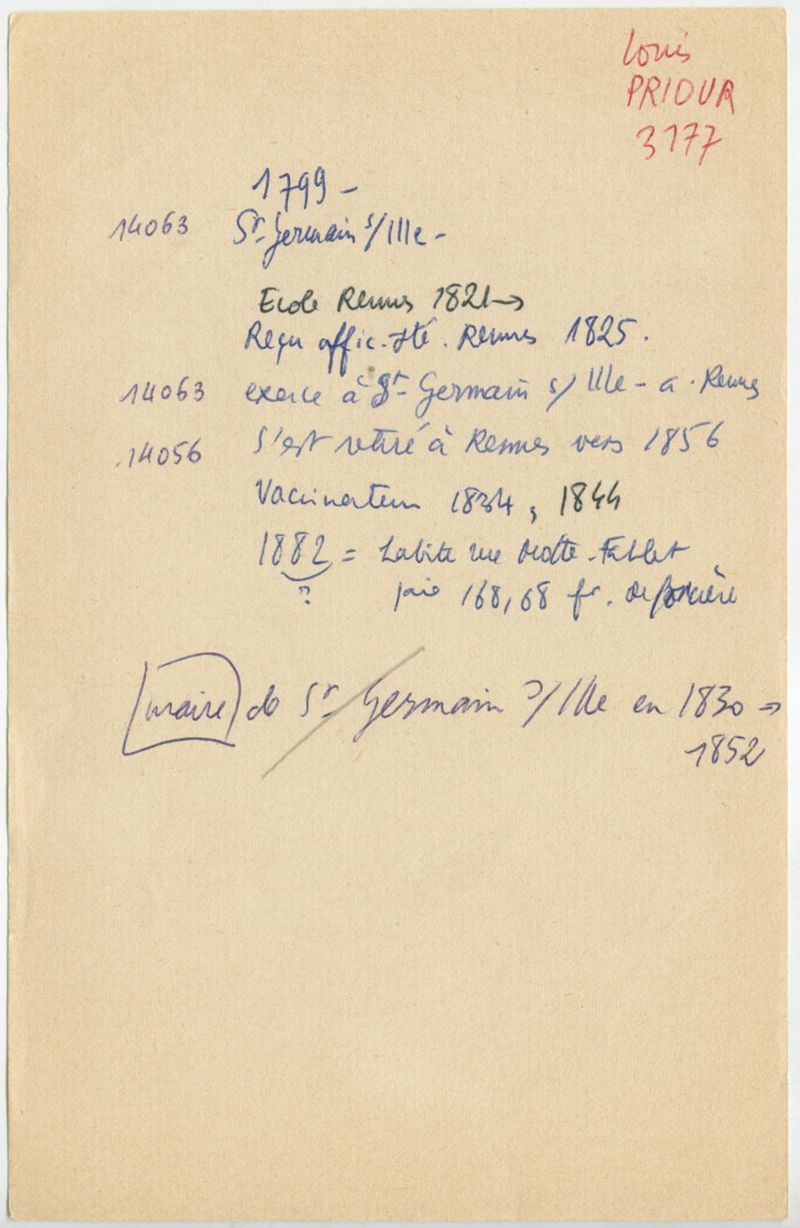 Louis
PRIOUR
3177
1799 -
14063 St- Germain s/Ille -
Ecole Rennes 1821→
Reçu offic. sté. Rennes 1825.
14063 exerce à St- Germain s/ Ille - a. Rennes
14056 S'est retiré à Rennes vers 1856
Vaccinateur 1834, 1844
1882 = habite rue Motte-Fablet
? paie 168,68 fr. de
(maire) de St- Germain s/ Ille en 1830 →
1852